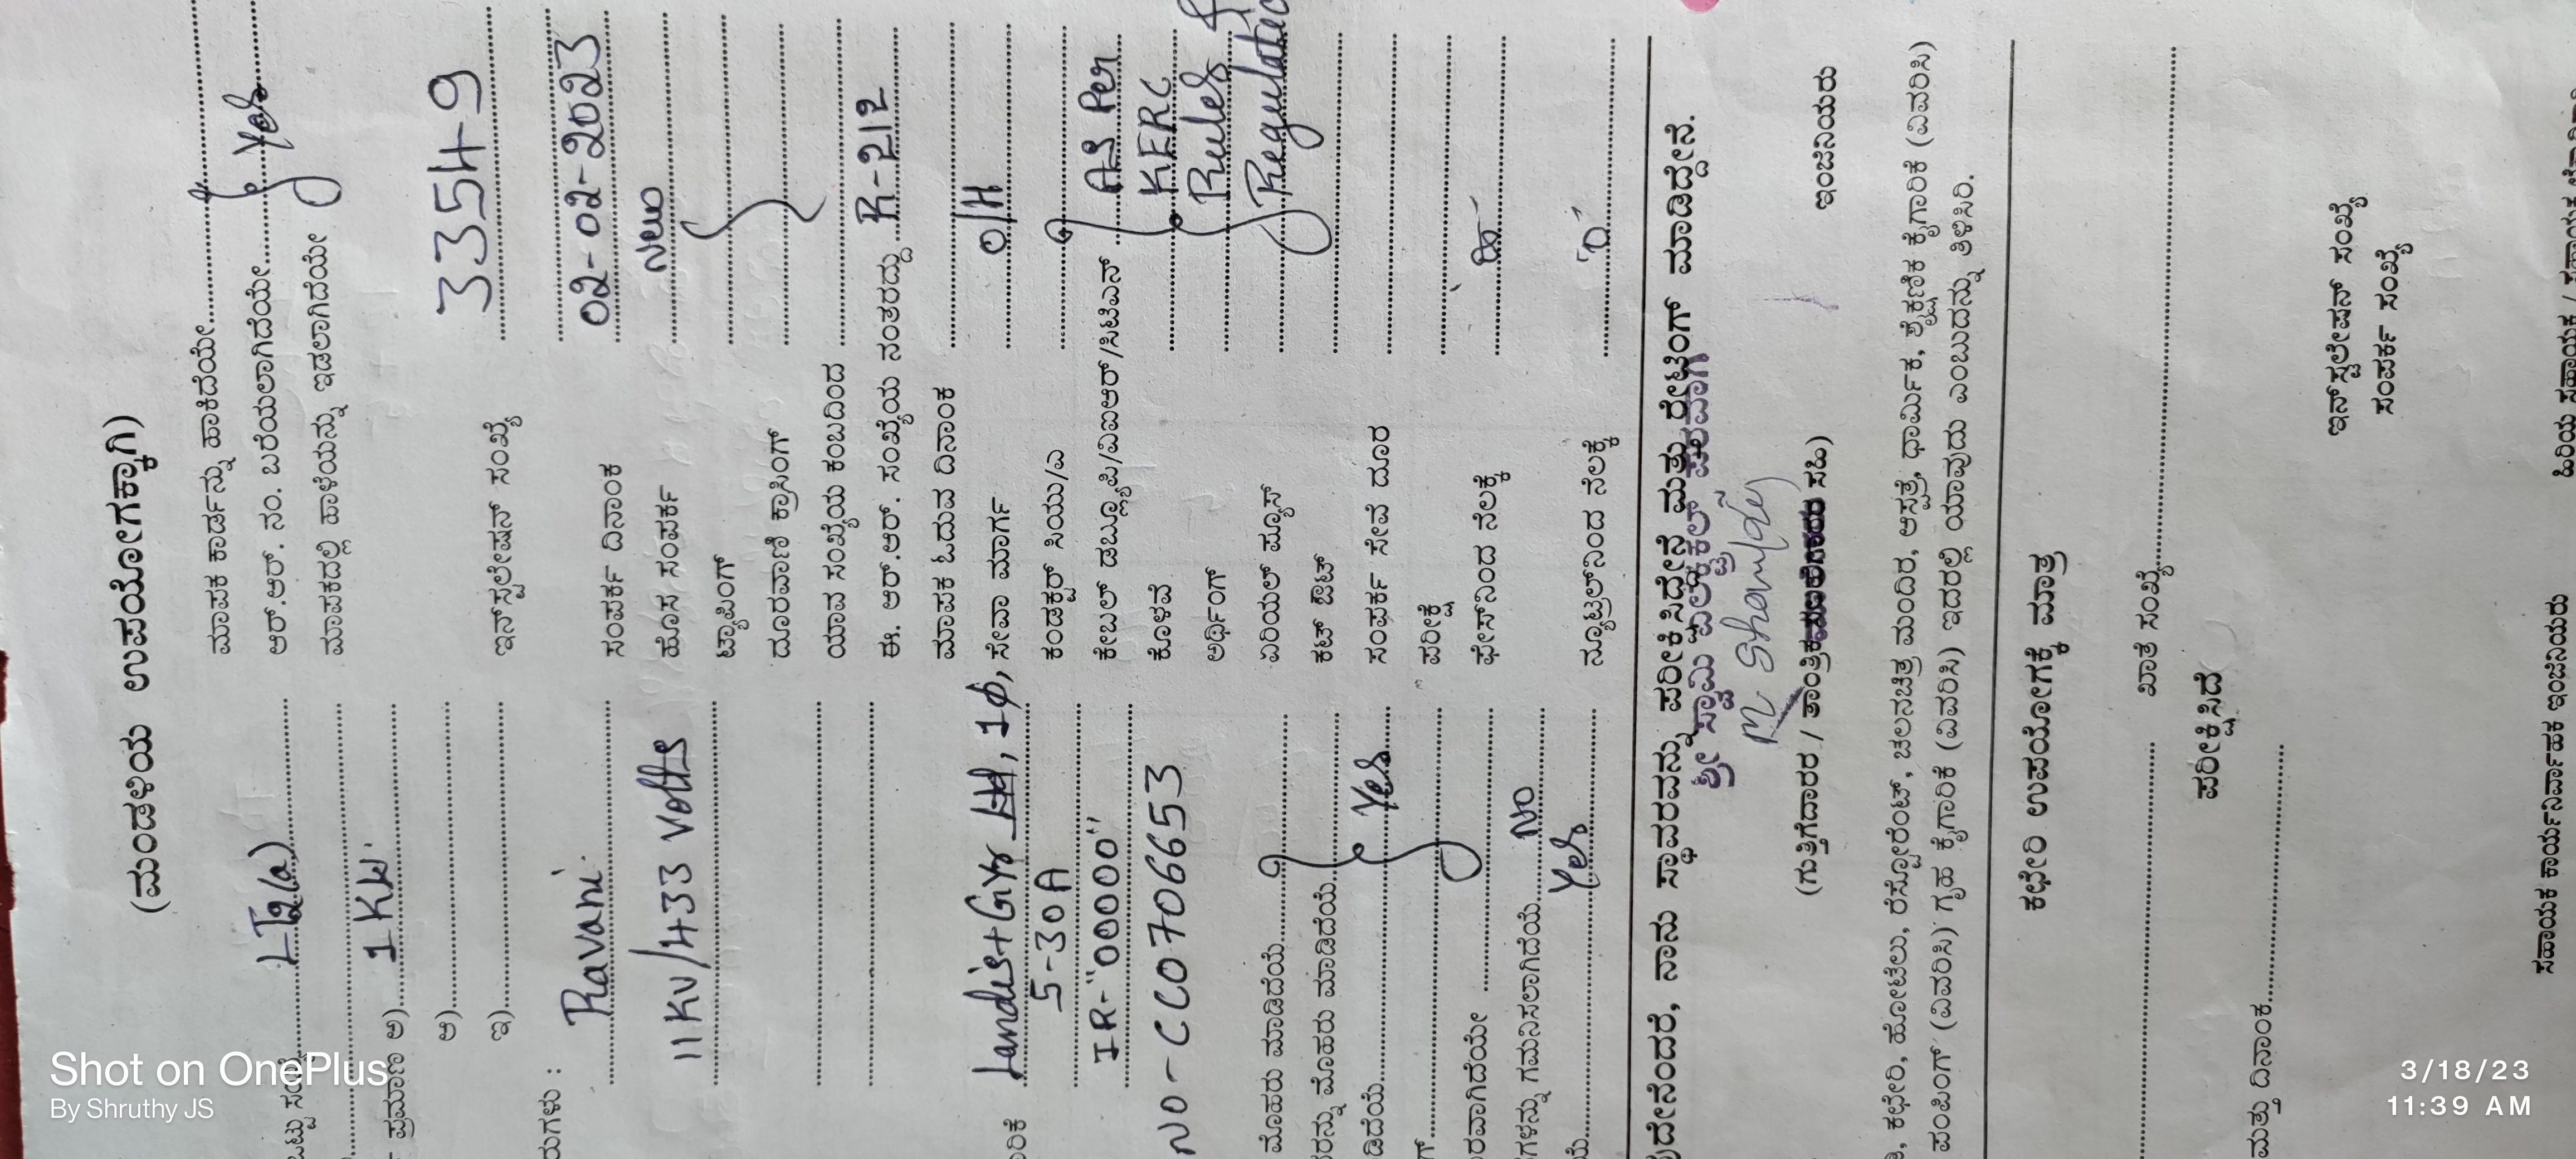 (ಮಂಡಳಿಯ ಉಪಯೋಗಕ್ಕಾಗಿ)
LT2(a)
ಪ್ರಮಾಣ ಅ) 1 KW
ಆ)
ಇ)
Ravani
11KV/433 Volts
Landis+Gyr 1Φ,
5-30A
IR-"00000"
NO-CC0706653
ಮೊಹರು ಮಾಡಿದೆಯೆ
ಮೊಹರು ಮಾಡಿದೆಯೆ
Yes
ಗಮನಿಸಲಾಗಿದೆಯೆ No
Yes
ಮಾಪಕ ಕಾರ್ಡನ್ನು ಹಾಕಿದೆಯೇ
ಆರ್.ಆರ್. ನಂ. ಬರೆಯಲಾಗಿದೆಯೇ Yes
ಮಾಪಕದಲ್ಲಿ ಹಾಳೆಯನ್ನು ಇಡಲಾಗಿದೆಯೇ
ಇನ್‌ಸ್ಟಲೇಷನ್ ಸಂಖ್ಯೆ 33549
ಸಂಪರ್ಕ ದಿನಾಂಕ 02-02-2023
ಹೊಸ ಸಂಪರ್ಕ New
ಟ್ಯಾಪಿಂಗ್
ದೂರವಾಣಿ ಕ್ರಾಸಿಂಗ್
ಯಾವ ಸಂಖ್ಯೆಯ ಕಂಬದಿಂದ
ಈ. ಆರ್.ಆರ್. ಸಂಖ್ಯೆಯ ನಂತರದ್ದು R-212
ಮಾಪಕ ಓದುವ ದಿನಾಂಕ
ಸೇವಾ ಮಾರ್ಗ O/H
ಕಂಡಕ್ಟರ್ ಸಿಯು/ಎ
ಕೇಬಲ್ ಡಬ್ಲ್ಯೂಪಿ/ವಿಐಆರ್/ಸಿಟಿಎಸ್ As Per
ಕೊಳವೆ KERC
ಅರ್ಥಿಂಗ್ Rules &
ಏರಿಯಲ್ ಫ್ಯೂಸ್
ಕಟ್ ಔಟ್
ಸಂಪರ್ಕ ಸೇವೆ ದೂರ
ಪರೀಕ್ಷೆ
ಫೇಸ್‌ನಿಂದ ನೆಲಕ್ಕೆ
ನ್ಯೂಟ್ರಲ್‌ನಿಂದ ನೆಲಕ್ಕೆ
ನಾನು ಸ್ಥಾವರವನ್ನು ಪರೀಕ್ಷಿಸಿದ್ದೇನೆ ಮತ್ತು ರೇಟಿಂಗ್ ಮಾಡಿದ್ದೇನೆ.
ಶ್ರೀ ಸ್ವಾಮಿ ಎಲೆಕ್ಟ್ರಿಕಲ್
(ಗುತ್ತಿಗೆದಾರರ / ತಾಂತ್ರಿಕ ಸಹಿ) ಇಂಜಿನಿಯರು
ಕಛೇರಿ, ಹೋಟೆಲು, ರೆಸ್ಟೋರೆಂಟ್, ಚಲನಚಿತ್ರ ಮಂದಿರ, ಆಸ್ಪತ್ರೆ, ಧಾರ್ಮಿಕ, ಶೈಕ್ಷಣಿಕ ಕೈಗಾರಿಕೆ (ವಿವರಿಸಿ)
ಪಂಪಿಂಗ್ (ವಿವರಿಸಿ) ಗೃಹ ಕೈಗಾರಿಕೆ (ವಿವರಿಸಿ) ಇದರಲ್ಲಿ ಯಾವುದು ಎಂಬುದನ್ನು ತಿಳಿಸಿರಿ.
ಕಛೇರಿ ಉಪಯೋಗಕ್ಕೆ ಮಾತ್ರ
ಖಾತೆ ಸಂಖ್ಯೆ
ಪರೀಕ್ಷಿಸಿದೆ
ಮತ್ತು ದಿನಾಂಕ
ಇನ್‌ಸ್ಟಲೇಷನ್ ಸಂಖ್ಯೆ
ಸಂಪರ್ಕ ಸಂಖ್ಯೆ
ಸಹಾಯಕ ಕಾರ್ಯನಿರ್ವಾಹಕ ಇಂಜಿನಿಯರು
ಹಿರಿಯ ಸಹಾಯಕ /
Shot on OnePlus
By Shruthy JS
3/18/23
11:39 AM